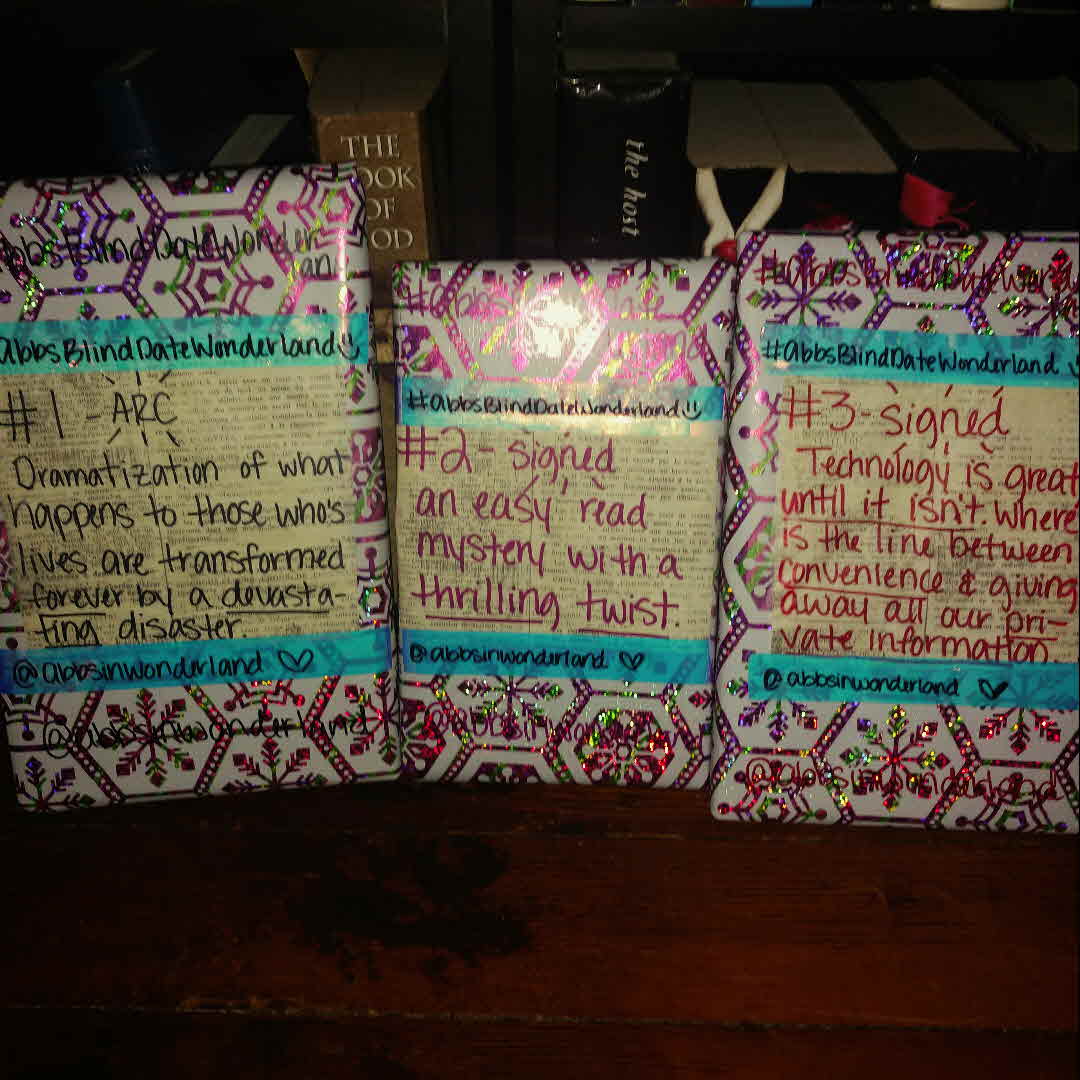 THE
OF
the host
#abbsBlindDateWonderland
#1 - ARC
Dramatization of what
happens to those who's
lives are transformed
forever by a devasta-
ting disaster.
@abbsinwonderland ♡
@abbsinwonderland
#abbsBlindDateWonderland
#2 - signed
an easy read
mystery with a
thrilling twist.
@abbsinwonderland ♡
@abbsinwonderland
#abbsBlindDateWonderland
#3 - signed
Technology is great
until it isn't. Where
is the line between
convenience & giving
away all our pri-
vate information.
@abbsinwonderland ♡
@abbsinwonderland